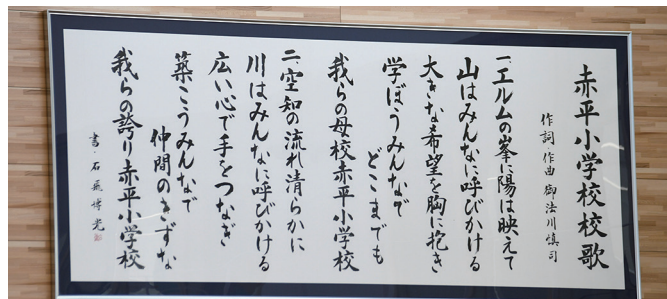 赤平小学校校歌
作詞・作曲 御法川慎司
一、エルムの峯に陽は映えて
山はみんなに呼びかける
大きな希望を胸に抱き
学ぼうみんなで
どこまでも
我らの母校赤平小学校
二、空知の流れ清らかに
川はみんなに呼びかける
広い心で手をつなぎ
築こうみんなで
仲間のきずな
我らの誇り赤平小学校
書・石飛博光